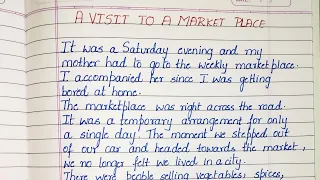 A VISIT TO A MARKET PLACE
It was a Saturday evening and my
mother had to go to the weekly marketplace.
I accompanied her since I was getting
bored at home.
The marketplace was right across the road.
It was a temporary arrangement for only
a single day! The moment we stepped out
of our car and headed towards the market,
we no longer felt we lived in a city.
There were people selling vegetables, spices,